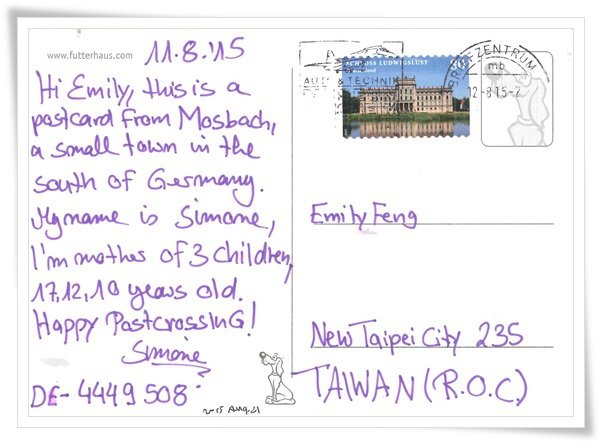 www.futterhaus.com
11.8.'15
Hi Emily, this is a
postcard from Mosbach,
a small town in the
south of Germany.
My name is Simone,
I'm mother of 3 children,
17,12,10 years old.
Happy PostcrossinG!
Simone
DE-4449508
2015 Aug. 21
SCHLOSS LUDWIGSLUST
AUTO & TECHNIK
BRIEFZENTRUM
mb
12-8.15-2
Emily Feng
New Taipei City 235
TAIWAN (R.O.C.)